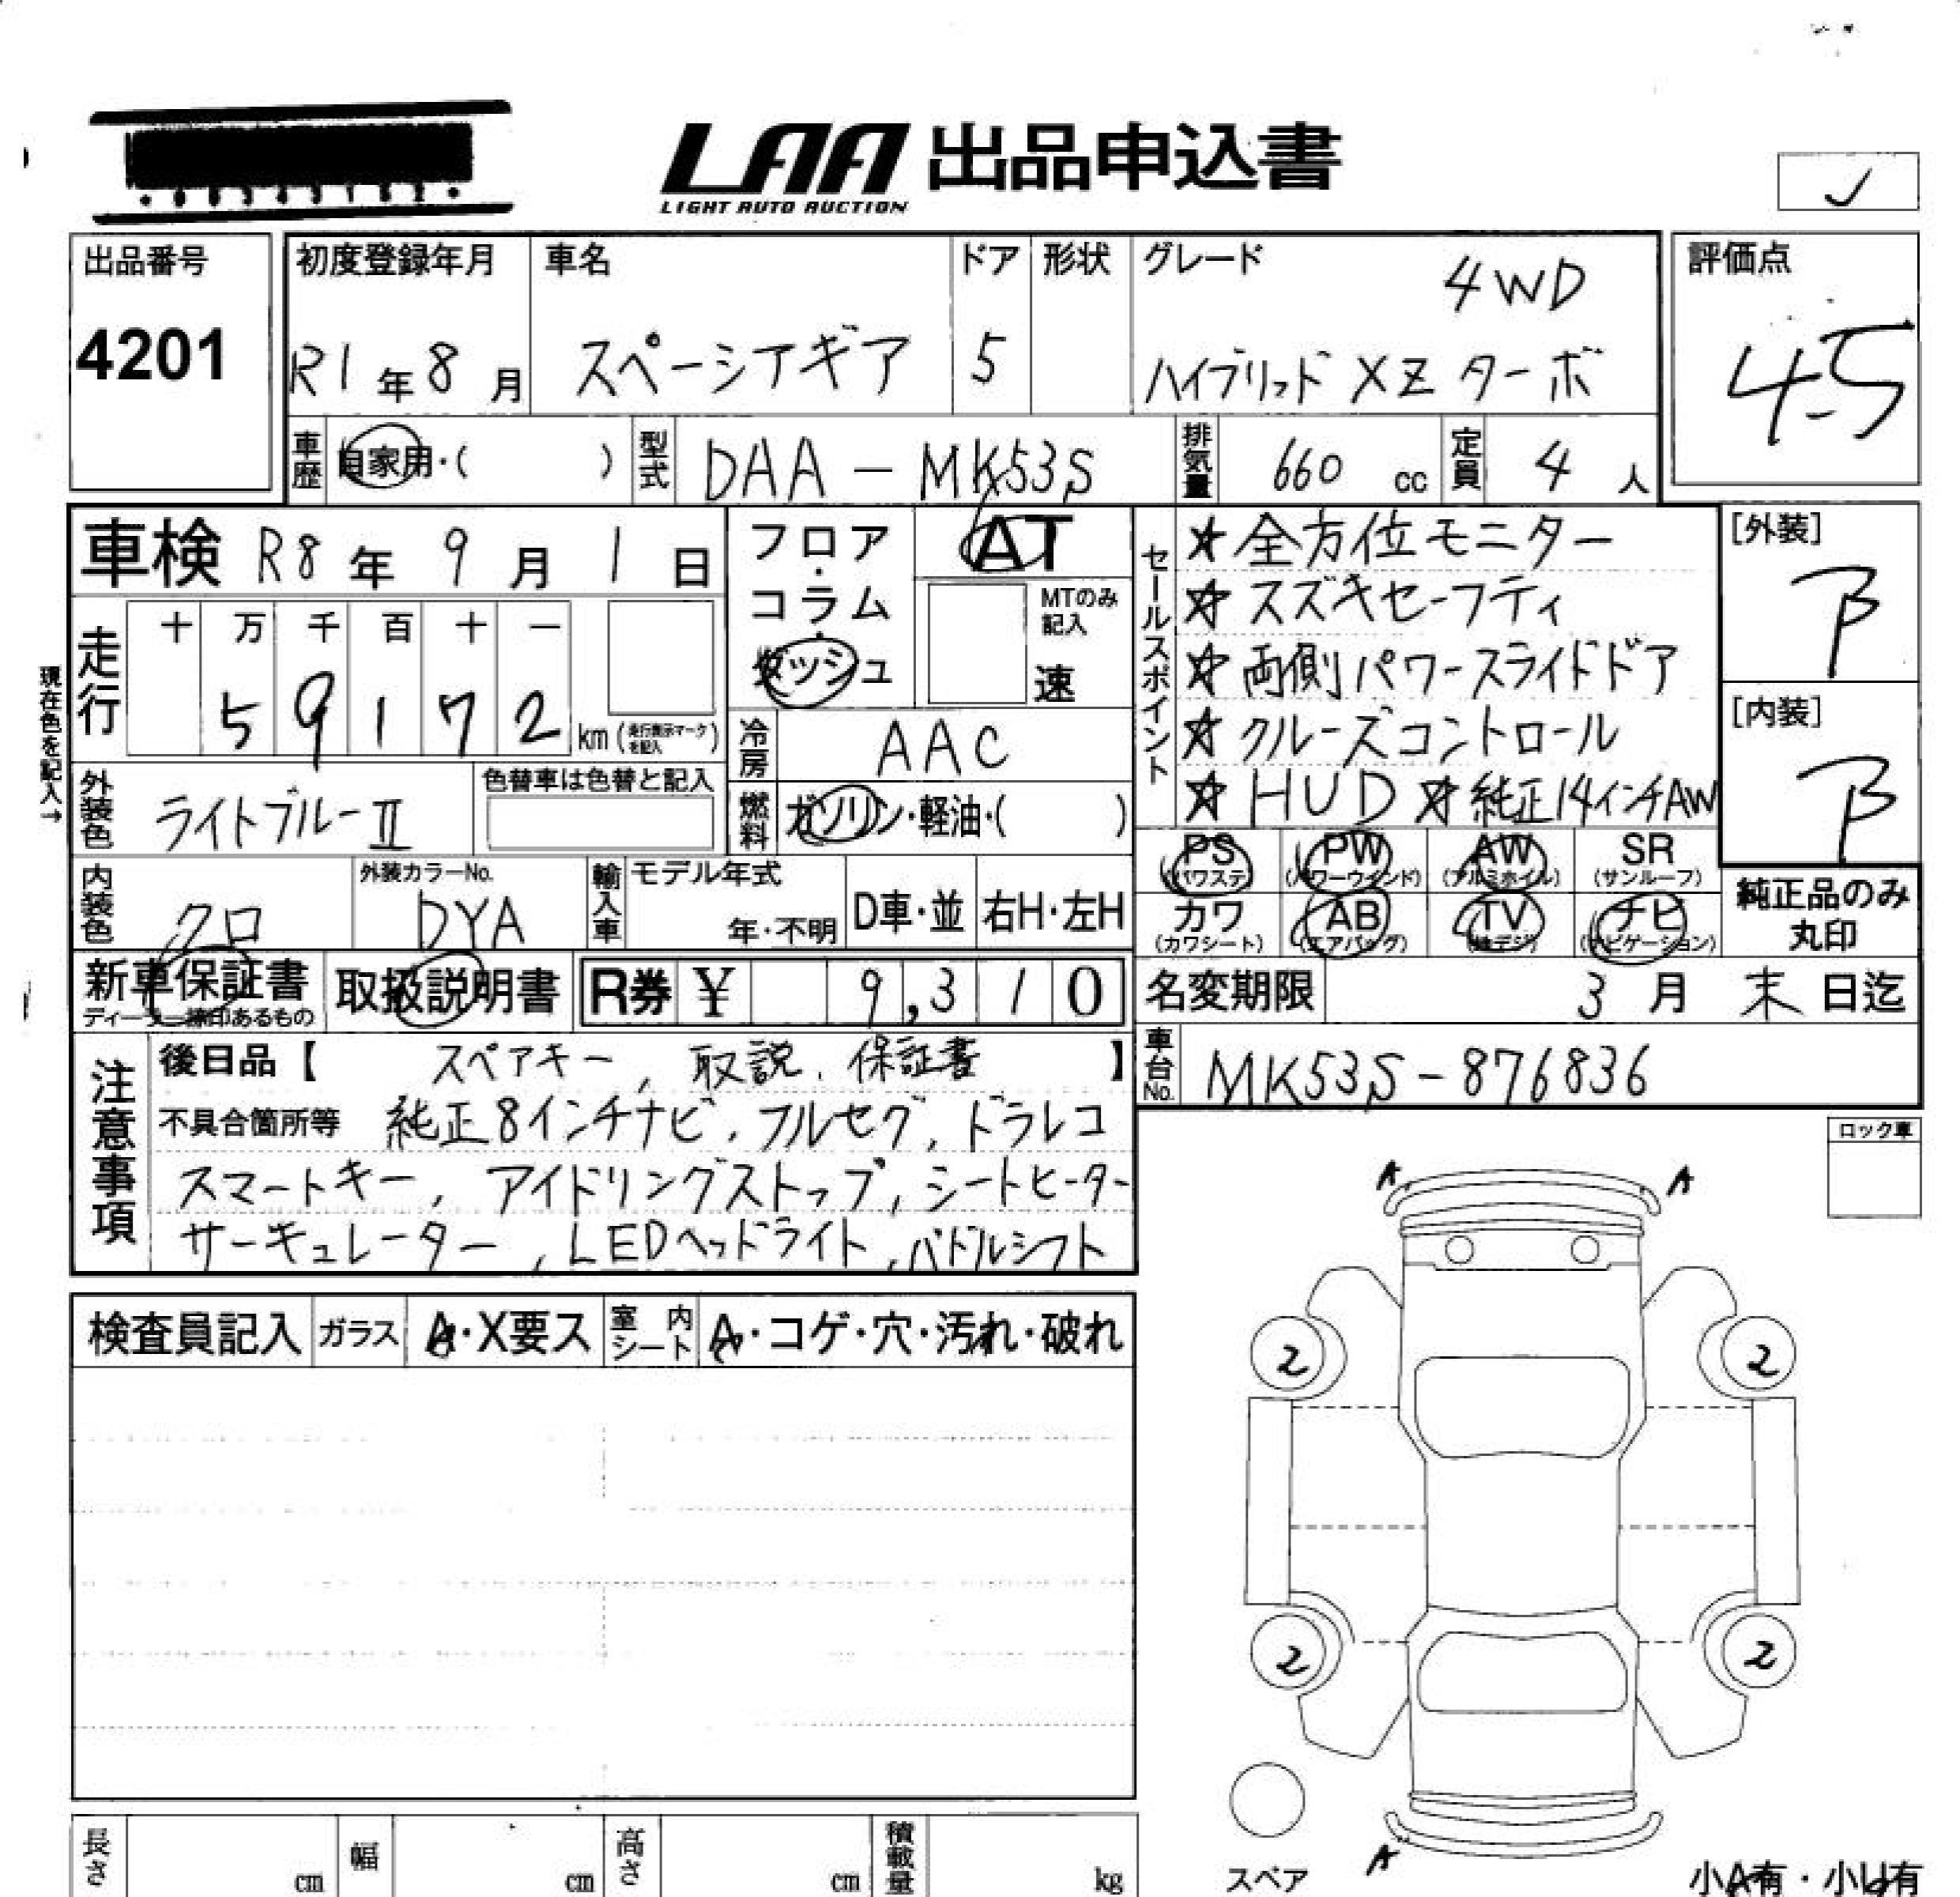 LAA 出品申込書
LIGHT AUTO AUCTION
出品番号
4201
初度登録年月
R1年8月
車名
スペーシアギア
ドア
5
形状
グレード
4WD
ハイブリッド XZ ターボ
評価点
4.5
車歴
自家用・( )
型式
DAA - MK53S
排気量
660 cc
定員
4 人
車検 R8年 9月 1日
フロア・コラム・ダッシュ
AT
MTのみ記入
速
走行
十 万 千 百 十 一
5 9 1 7 2 km
現在色を記入→
冷房
AAC
外装色
ライトブルーII
色替車は色替と記入
燃料
ガソリン・軽油・( )
内装色
クロ
外装カラーNo.
DYA
輸入車
モデル年式
年・不明
D車・並
右H・左H
セールスポイント
★全方位モニター
★スズキセーフティ
★両側パワースライドドア
★クルーズコントロール
★HUD ★純正14インチAW
[外装]
B
[内装]
B
PS (パワステ)
PW (パワーウインド)
AW (アルミホイル)
SR (サンルーフ)
カワ (カワシート)
AB (エアバッグ)
TV (地デジ)
ナビ (ナビゲーション)
純正品のみ丸印
新車保証書
取扱説明書
R券 ¥ 9,310
名変期限 3月 末日迄
車台No.
MK53S-876836
注意事項
後日品【 スペアキー, 取説, 保証書 】
不具合箇所等 純正8インチナビ, フルセグ, ドラレコ
スマートキー, アイドリングストップ, シートヒーター
サーキュレーター, LEDヘッドライト, パドルシフト
ロック車
検査員記入
ガラス
A・X要ス
室内シート
A・コゲ・穴・汚れ・破れ
A A
2 2
2 2
A
スペア
小A有・小U有
長さ cm
幅 cm
高さ cm
積載量 kg